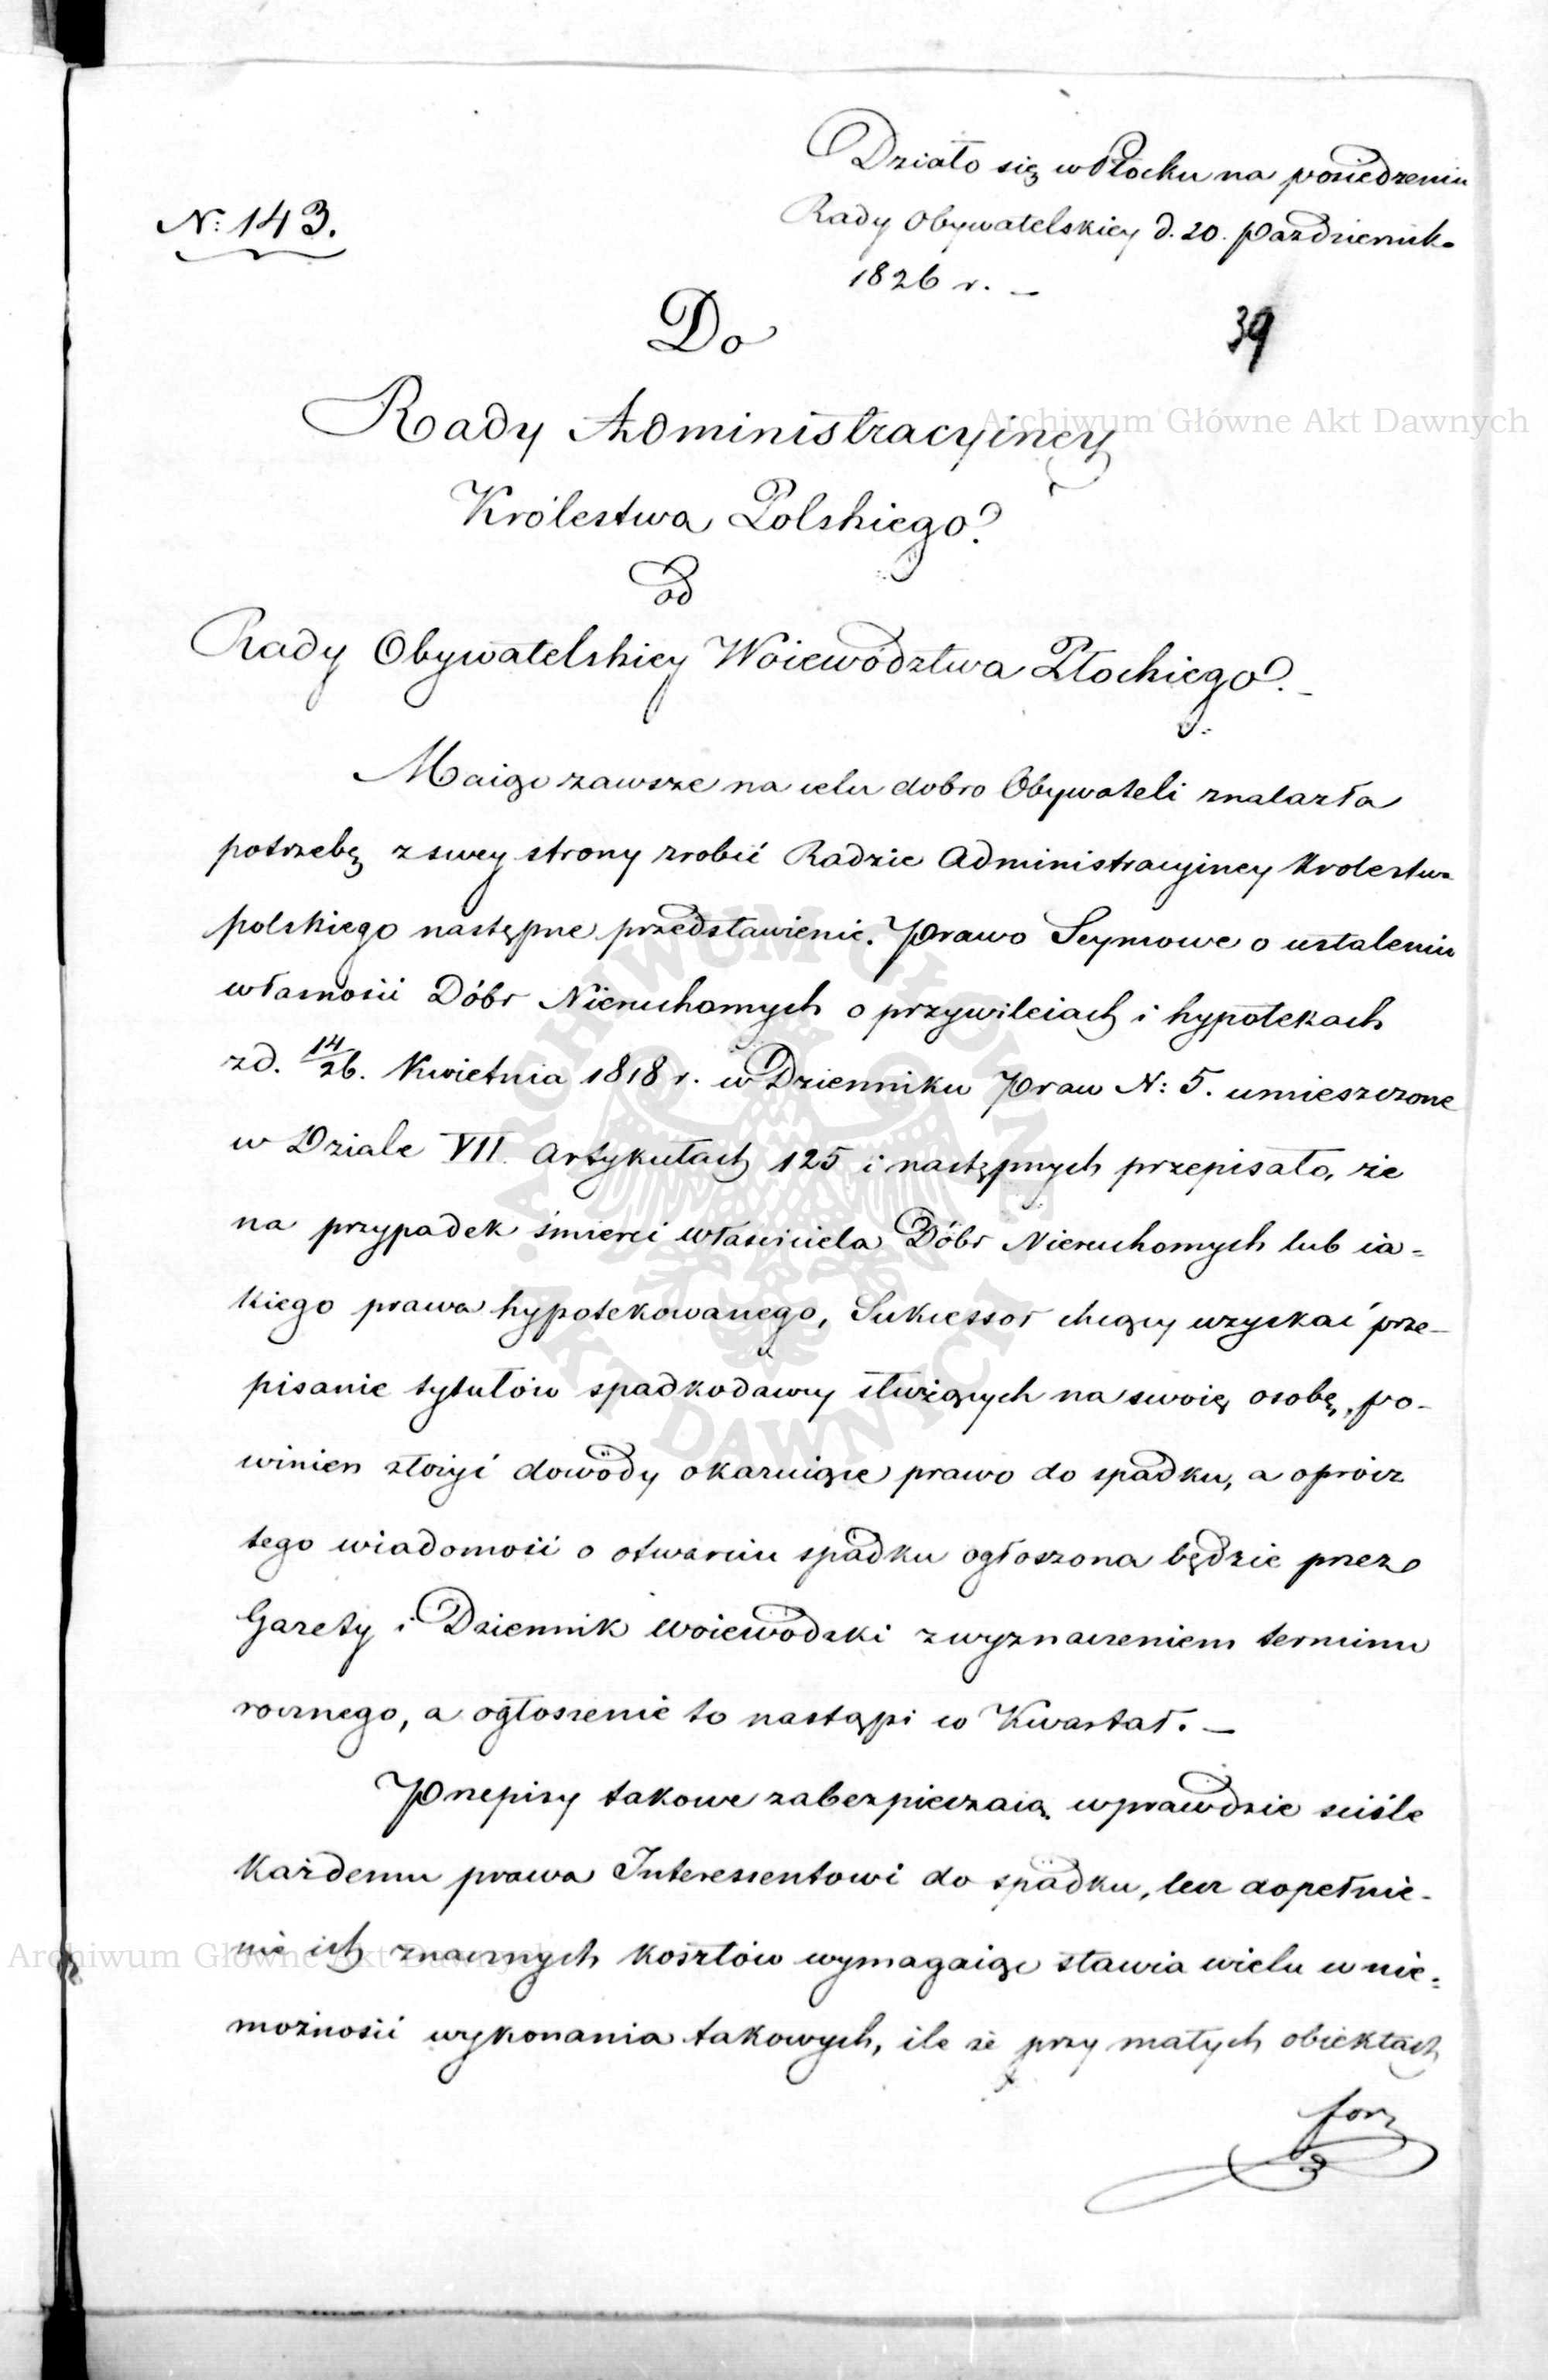 Działo się w Płocku na posiedzeniu
Rady Obywatelskiey d. 20. Pazdziernik.
1826 r. –
N: 143.
39
Do
Rady Administracyiney
Królestwa Polskiego.
od
Rady Obywatelskiey Woiewództwa Płockiego. –
Maiąc zawsze na celu dobro Obywateli znalazła
potrzebę z swey strony zrobić Radzie Administracyiney Krolestwa
polskiego następne przedstawienie. Prawo Seymowe o ustaleniu
własności Dóbr Nieruchomych o przywileiach i hypotekach
z d. 14/26. Kwietnia 1818 r. w Dzienniku Praw N: 5. umieszczone
w Dziale VII. Artykułach 125 i następnych przepisało, że
na przypadek śmierci właściciela Dóbr Nieruchomych lub ia=
kiego prawa hypotekowanego, Sukcessor chcący uzyskać prze–
pisanie tytułów spadkodawcy służących na swoię osobę, po–
winien złożyć dowody okazuiące prawo do spadku, a oprócz
tego wiadomość o otwarciu spadku ogłoszona będzie przez
Gazety i Dziennik Woiewódzki z wyznaczeniem terminu
rocznego, a ogłoszenie to nastąpi co Kwartał. –
Przepisy takowe zabezpieczaią wprawdzie sciśle
każdemu prawa Interessentowi do spadku, lecz dopełnie–
nie ich znacznych kosztów wymagaiąc stawia wielu w nie=
możności wykonania takowych, ile że przy małych obiektach
Archiwum Główne Akt Dawnych
Archiwum Główne Akt Dawnych
ARCHIWUM GŁÓWNE AKT DAWNYCH